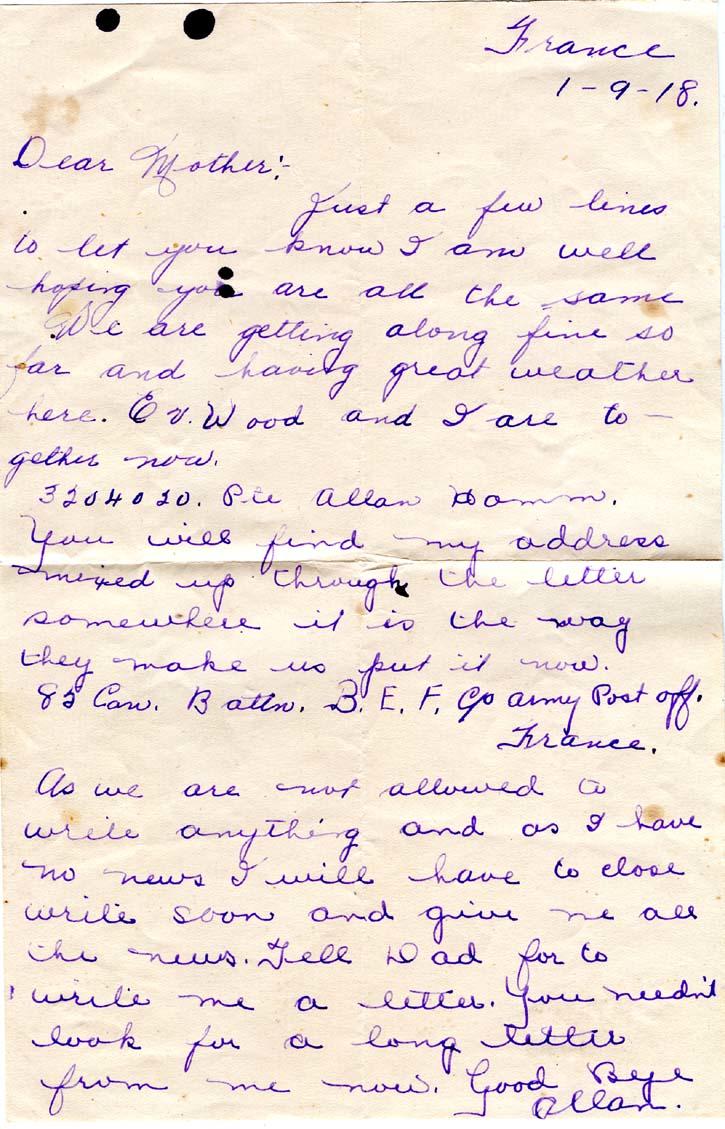 France
1-9-18.
Dear Mother:-
Just a few lines
to let you know I am well
hoping you are all the same
We are getting along fine so
far and having great weather
here. E V. Wood and I are to-
gether now.
3204020. Pte Allan Hamm.
You will find my address
mixed up through the letter
somewhere it is the way
they make us put it now.
85 Can. Battn. B. E. F, Co army Post off.
France.
As we are not allowed to
write anything and as I have
no news I will have to close
write soon and give me all
the news. Tell Dad for to
write me a letter. You needn't
look for a long letter
from me now. Good Bye
Allan.